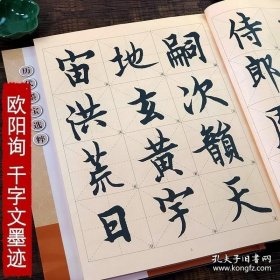 侍郎
嗣次韻天
地玄黄宇
宙洪荒日
历代墨宝选粹
欧阳询 千字文墨迹
孔夫子旧书网